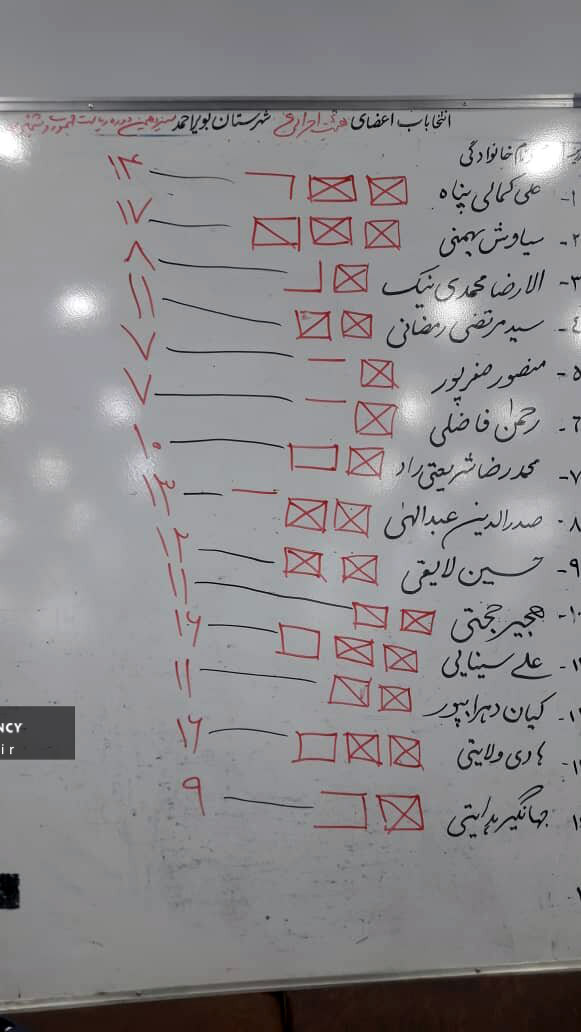 انتخابات اعضای هیئت اجرایی شهرستان بویراحمد سیزدهمین دوره ریاست جمهوری و ششمین
نام خانوادگی
۱- علی کمالی پناه ۱۴
۲- سیاوش بهمنی ۱۷
۳- الارضا محمدی نیک ۸
۴- سید مرتضی رمضانی ۱۱
۵- منصور صفرپور ۷
۶- رحمن فاضلی ۷
۷- محمدرضا شریعتی راد ۱۰
۸- صدرالدین عبدالهی ۱۳
۹- حسین لایقی ۱۲
۱۰- هجیر حجتی ۱۱
علی سینایی ۱۶
کیان دهرابپور ۱۱
هادی ولایتی ۱۶
جهانگیر هدایتی ۹
NCY
ir